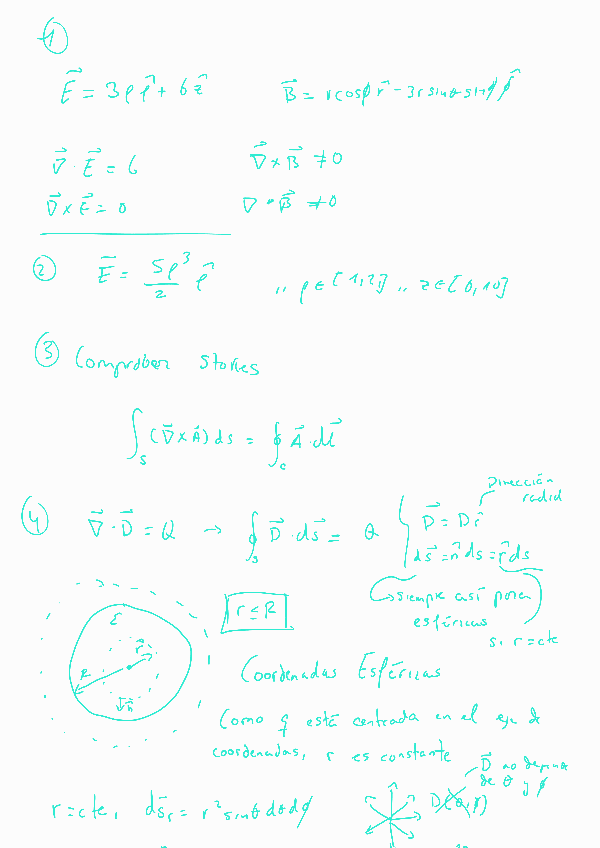 ①
E⃗ = 3ρρ̂ + 6ẑ    B⃗ = r cosϕ r̂ - 3r sinθ sinϕ ϕ̂
∇⃗ · E⃗ = 6    ∇⃗ × B⃗ ≠ 0
∇⃗ × E⃗ = 0    ∇ · B⃗ ≠ 0
② E⃗ = 5ρ³/2 ρ̂ ,, ρ ∈ [1,2] ,, z ∈ [0,10]
③ Comprobar Stokes
∫_S (∇⃗ × A⃗) ds = ∮_C A⃗ · dl⃗
Dirección
radial
④ ∇⃗ · D⃗ = Q → ∮_S D⃗ · ds⃗ = Q { D⃗ = D r̂
ds⃗ = n̂ ds = r̂ ds
siempre así para
esféricas
si r = cte
r ≤ R
ε
r̂
R
n̂
Coordenadas Esféricas
Como q está centrada en el eje de
coordenadas, r es constante
D⃗ no depende
de θ y ϕ
r = cte, ds⃗_r = r² sinθ dθ dϕ
D(θ,ϕ)